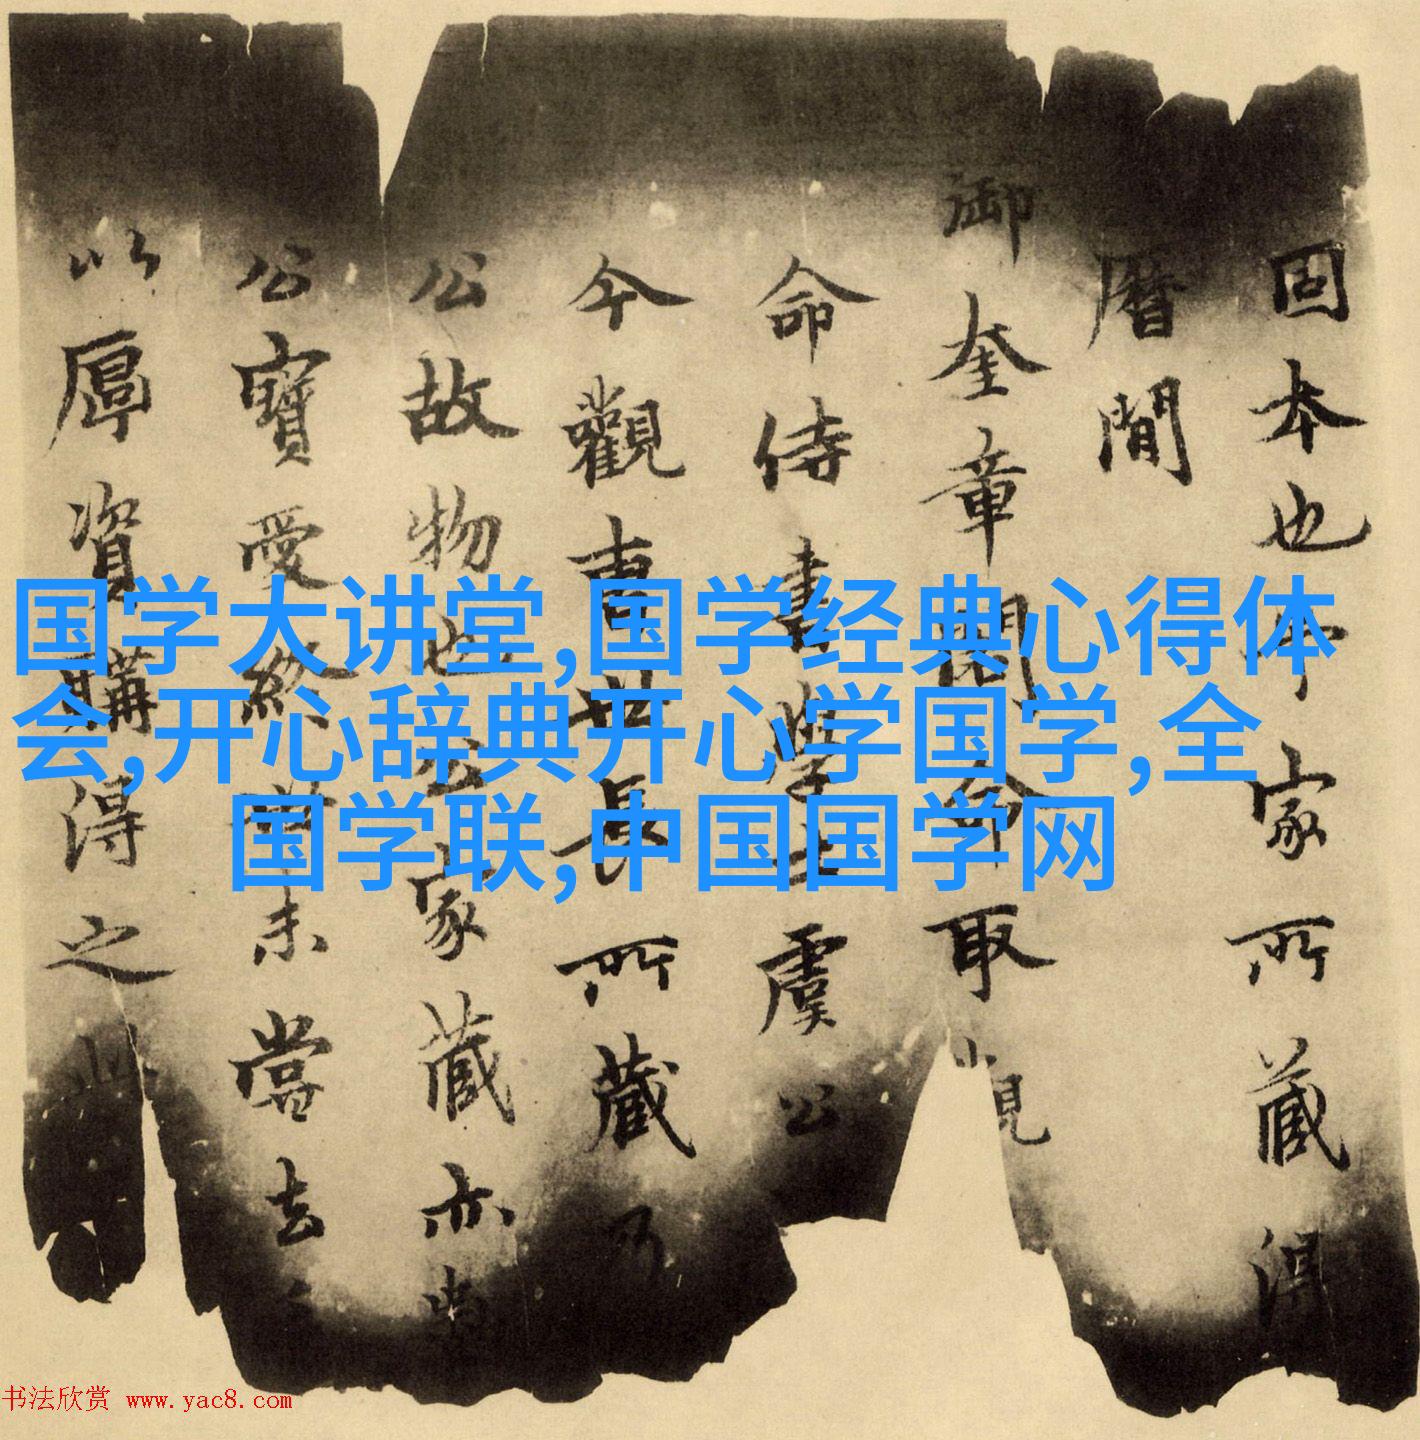 固本也卞家所藏得
曆間
御奎章閣命取觀
命侍書學士虞公
今觀曹世長所藏乃
公故物也公家藏亦
公寶愛終世未嘗去
以厚資購得之
国学大讲堂,国学经典心得体
会,开心辞典开心学国学,全
国学联,中国国学网
书法欣赏 www.yac8.com